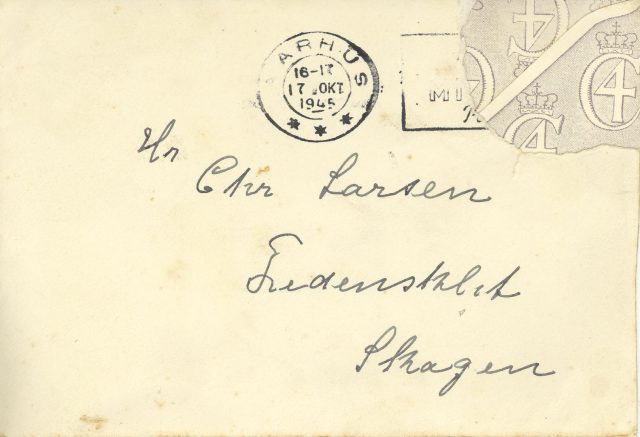 AARHUS
16-17
17 OKT
1945
Hr
Chr Larsen
Fredensklit
Skagen